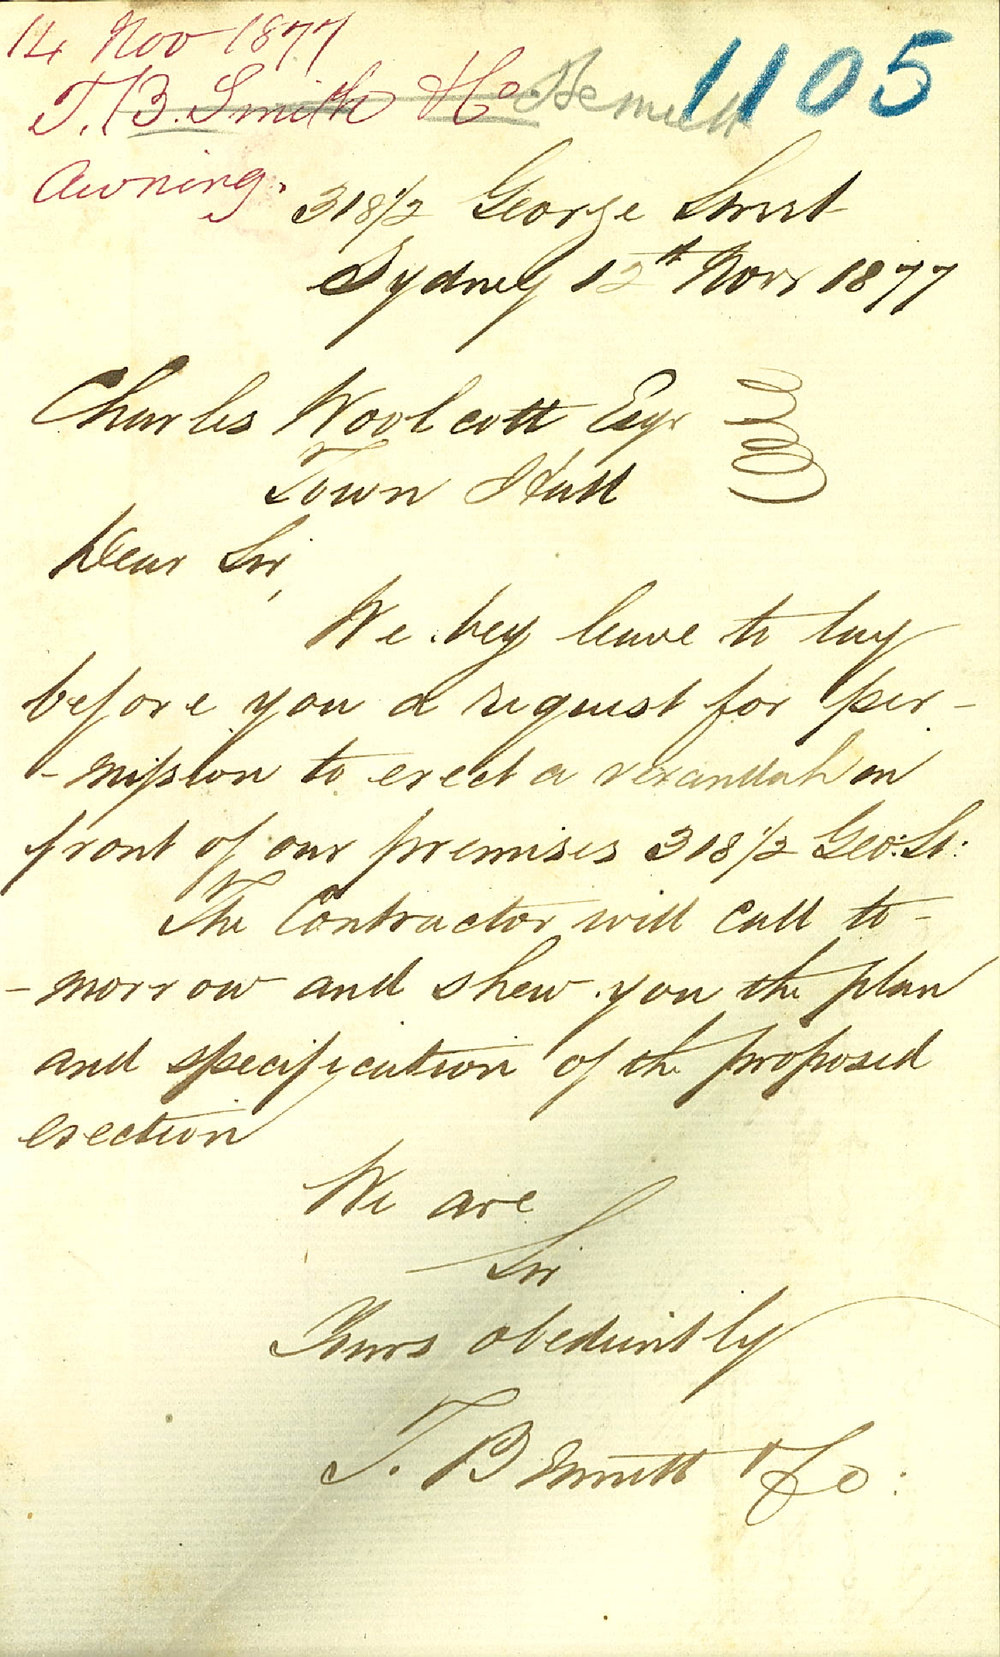 14 Nov 1877
1105
T. B. Smith & Co Bennett
Awning.
318 1/2 George Street
Sydney 12th Novr 1877
Charles Woolcott Esqr
Town Hall
Dear Sir,
We beg leave to lay
before you a request for per-
-mission to erect a verandah in
front of our premises 318 1/2 Geo: St:
The Contractor will call to-
-morrow and shew you the plan
and specification of the proposed
erection
We are
Sir
Yours obediently
T. Bennett & Co: